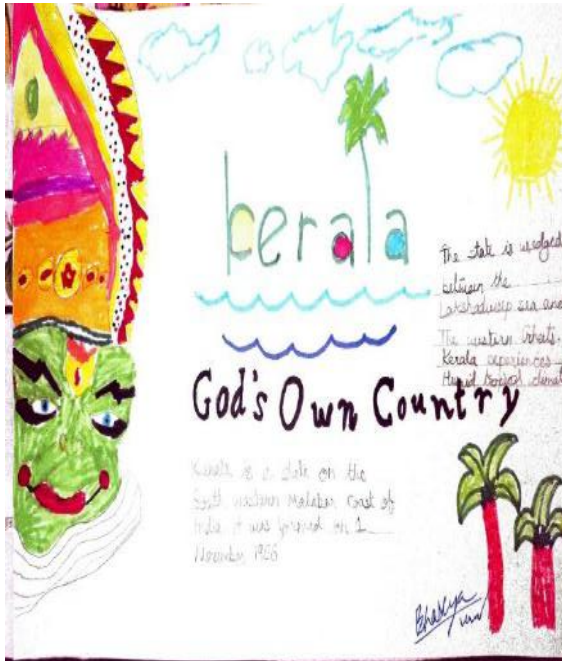 kerala
The state is wedged
between the
Lakshadweep sea and
The western Ghats.
Kerala experiences
Humid tropical climat
God's Own Country
Kerala is a state on the
South western Malabar coast of
India it was formed on 1
November 1956